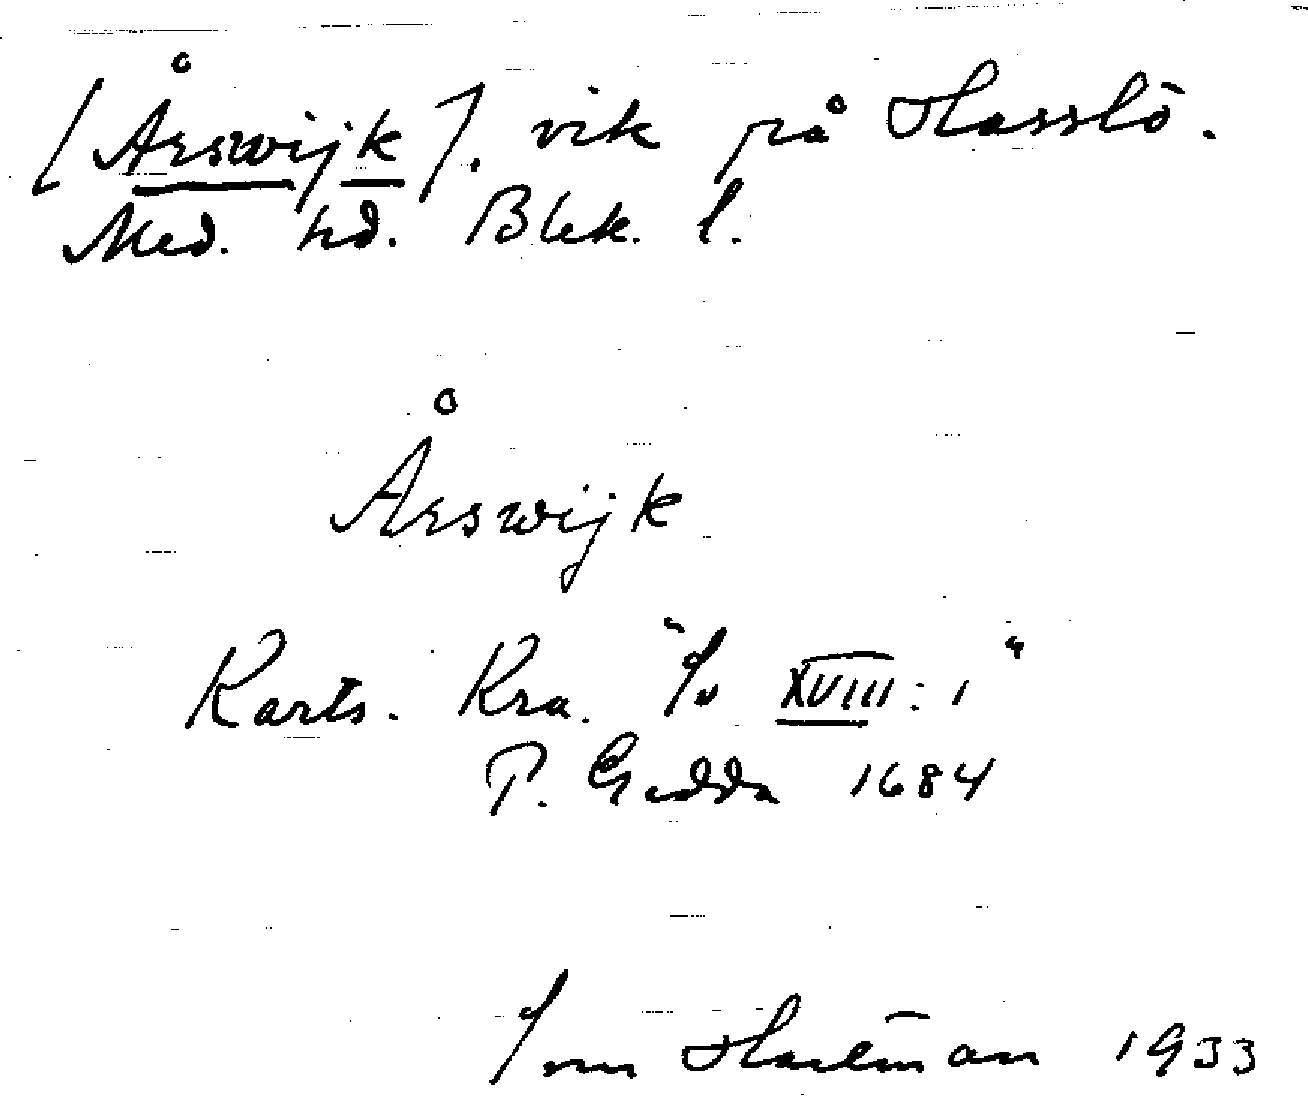 [Årswijk], vik på Hasslö.
Med. hd. Blek. l.
Årswijk
Karts. Kra. " XVIII: 1"
P. Gedda 1684
Hartman 1933